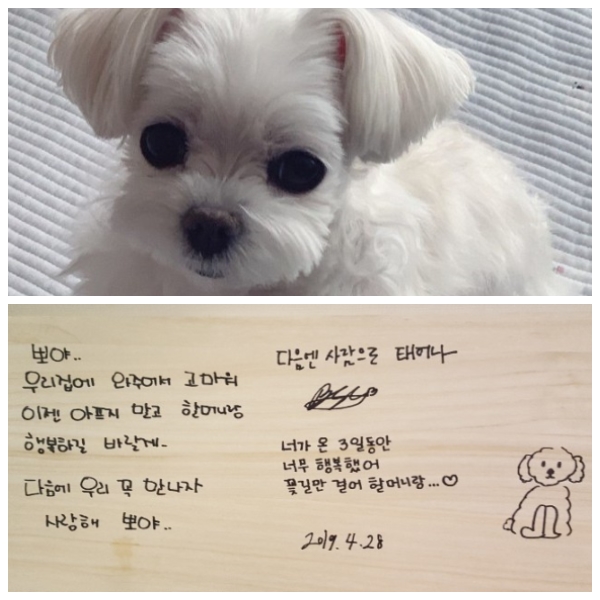 뽀야..
우리집에 와주어서 고마워
이젠 아프지 말고 할머니랑
행복하길 바랄게~
다음에 우리 꼭 만나자
사랑해 뽀야..
다음엔 사람으로 태어나
너가 온 3일동안
너무 행복했어
꽃길만 걸어 할머니랑...♡
2019.4.28